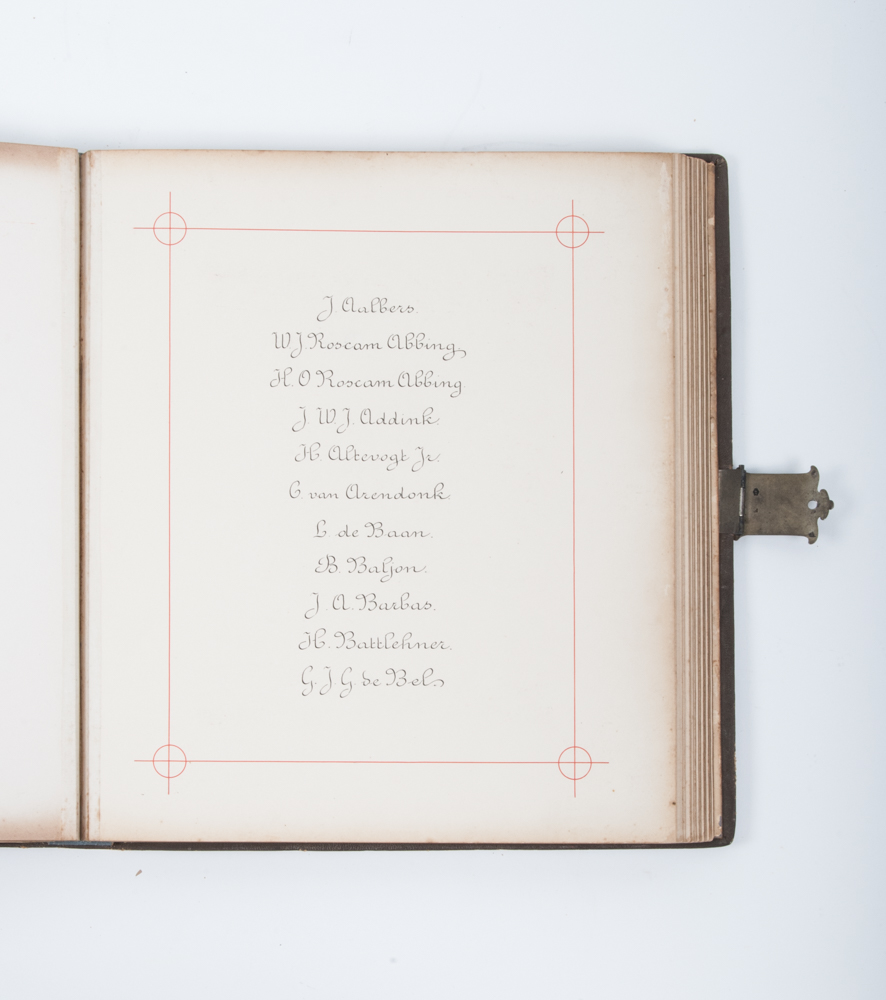 J Aalbers.
W J Roscam Abbing
H. O Roscam Abbing.
J. W J. Addink.
H. Altevogt Jr.
C. van Arendonk.
L. de Baan.
B. Baljon.
J. A. Barbas.
H. Battlehner.
G. J G. de Bel